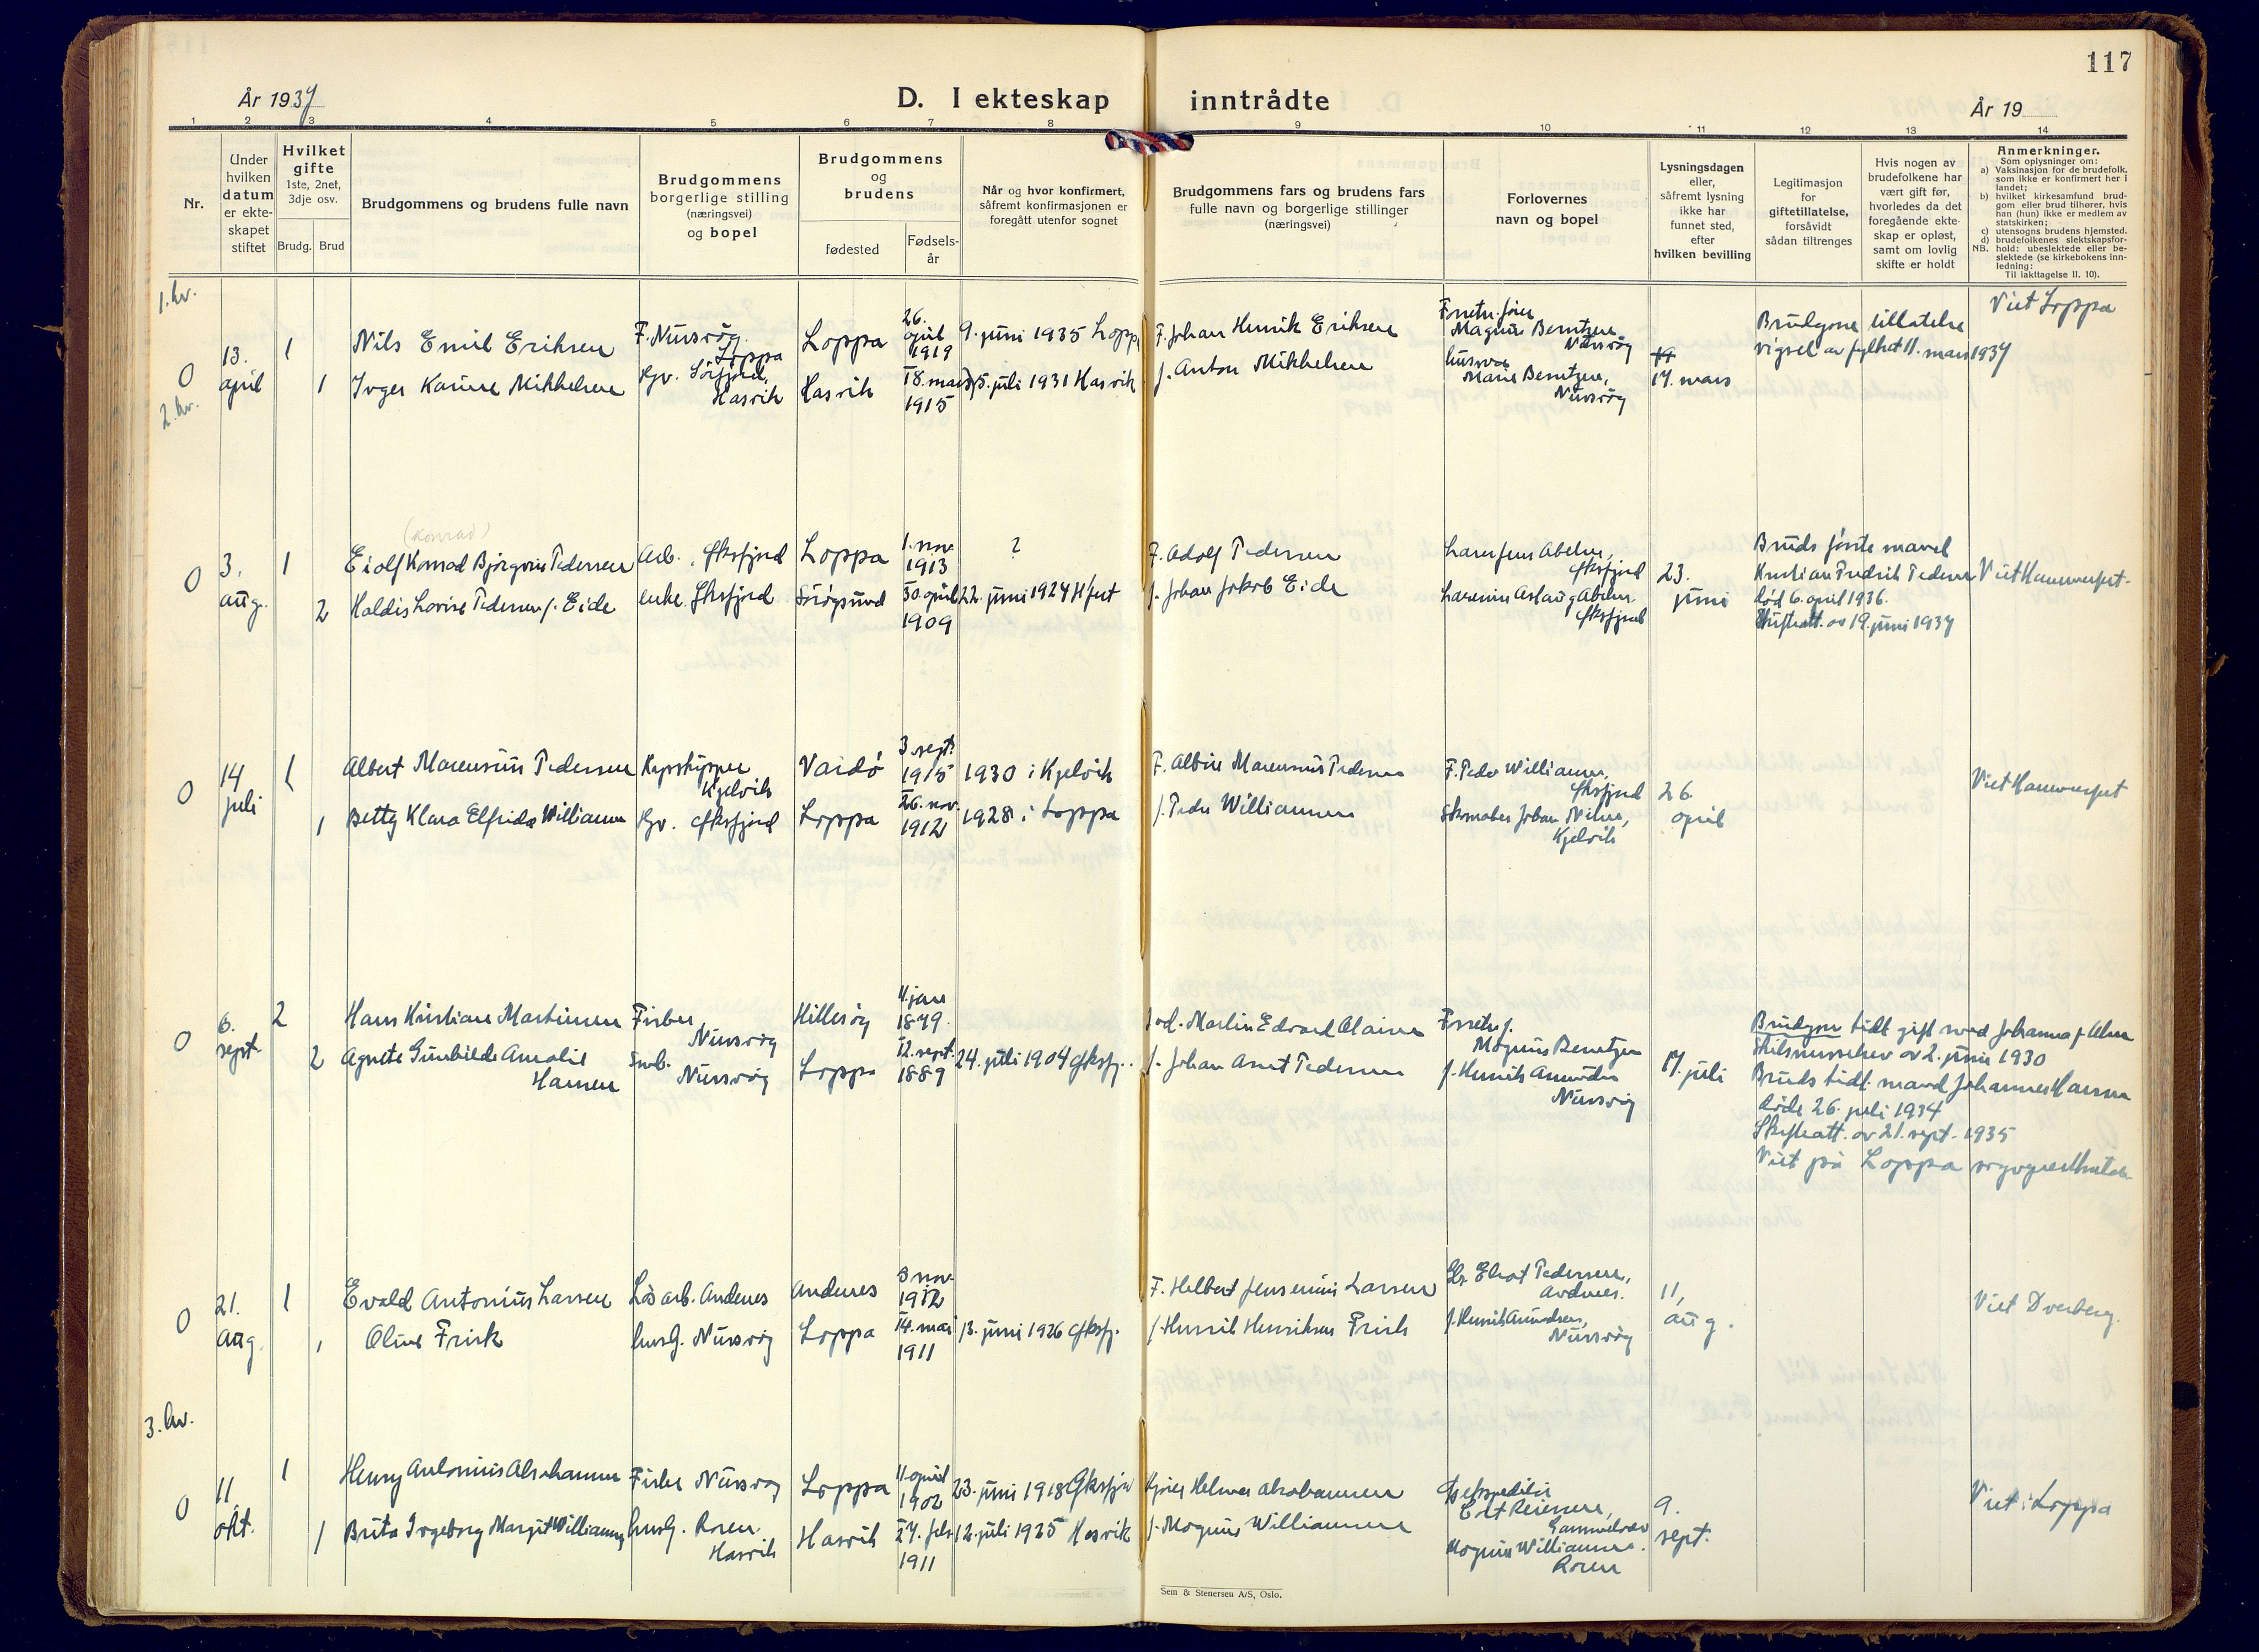 117
År 1937
D. I ekteskap inntrådte
År 19
1 2 3 4 5 6 7 8 9 10 11 12 13 14
Nr.
Under
hvilken
datum
er ekte-
skapet
stiftet
Hvilket
gifte
1ste, 2net,
3dje osv.
Brudg. Brud
Brudgommens og brudens fulle navn
Brudgommens
borgerlige stilling
(næringsvei)
og bopel
Brudgommens
og
brudens
fødested
Fødsels-
år
Når og hvor konfirmert,
såfremt konfirmasjonen er
foregått utenfor sognet
Brudgommens fars og brudens fars
fulle navn og borgerlige stillinger
(næringsvei)
Forlovernes
navn og bopel
Lysningsdagen
eller,
såfremt lysning
ikke har
funnet sted,
efter
hvilken bevilling
Legitimasjon
for
giftetillatelse,
forsåvidt
sådan tiltrenges
Hvis nogen av
brudefolkene har
vært gift før,
hvorledes da det
foregående ekte-
skap er opløst,
samt om lovlig
skifte er holdt
Anmerkninger.
Som oplysninger om:
a) Vaksinasjon for de brudefolk,
som ikke er konfirmert her i
landet;
b) hvilket kirkesamfund brud-
gom eller brud tilhører, hvis
han (hun) ikke er medlem av
statskirken;
c) utensogns brudens hjemsted.
d) brudefolkenes slektskapsfor-
NB. hold: ubeslektede eller be-
slektede (se kirkebokens inn-
ledning:
Til iakttagelse II. 10).
1. kv.
0
13.
april
1
1
Nils Emil Eriksen
Inger Karine Mikkelsen
F. Nuvsvåg
Loppa
Gjv. Sørfjord,
Hasvik
Loppa
Hasvik
26.
april
1919
18. mars
1915
9. juni 1935 Loppa
5. juli 1931 Hasvik
F. Johan Henrik Eriksen
f. Anton Mikkelsen
Magnus Berntzen
Nuvsvåg
husmor
Marie Berntzen,
Nuvsvåg
17. mars
Brudgom tillatelse
vigsel av fylket 11. mars 1937
Viet Loppa
2. kv.
0
3.
aug.
1
2
(Konrad)
Eiolf Konrad Bjørgvin Pedersen
Haldis Lovise Pedersen f. Eide
Arb. Øksfjord
enke. Øksfjord
Loppa
Sørøysund
1. nov.
1913
30. april
1909
?
22. juni 1924 H.fest
F. Adolf Pedersen
f. Johan Jakob Eide
Øksfjord
Øksfjord
23.
juni
Bruds første mann
Kristian Fredrik Pedersen
død 6. april 1936.
Skifteatt. av 19. juni 1937
Viet Hammerfest.
0
14
juli
1
1
Albert Marensius Pedersen
Betty Klara Elfrida Williamsen
Kjelvik
Gjv. Øksfjord
Vardø
Loppa
3. sept.
1915
26. nov.
1912
1930 i Kjelvik
1928 i Loppa
F. Albin Marensius Pedersen
f. Peder Williamsen
F. Peder Williamsen,
Øksfjord
Skomaker Johan Nilsen,
Kjelvik
26.
april
Viet Hammerfest
0
6.
sept.
2
2
Hans Kristian Martinsen
Agnete Gunhilde Amalie
Hansen
Fisker,
Nuvsvåg
Nuvsvåg
Hillesøy
Loppa
4. jan
1879.
12. sept.
1889
24. juli 1904 Øksfj.
f. Johan Arnt Pedersen
Magnus Berntzen
f. Henrik Amundsen
Nuvsvåg
17. juli
Brudgom tidl. gift med Johanna f. Olsen
Skilsmissebev. av 2. juni 1930
Bruds tidl. mand Johannes Hansen
døde 26. juli 1934
Skifteatt. av 21. sept. 1935
Viet på Loppa
0
21.
aug.
1
1
Evald Antonius Larsen
Oline Frisk
Løsarb. Andenes
hush. Nuvsvåg
Andenes
Loppa
3 nov.
1912
14. mai
1911
13. juni 1926 Øksfj.
F. Helbert Jensenius Larsen
f. Henrik Henriksen Frisk
Pedersen,
Andenes.
f. Henrik Amundsen,
Nuvsvåg
11.
aug.
Viet Dverberg.
3. kv.
0
11
okt.
1
1
Henry Antonius Abrahamsen
Brita Ingeborg Margit Williamsen
Fisker Nuvsvåg
hush. Roren
Hasvik
Loppa
Hasvik
11. april
1902
27. febr.
1911
23. juni 1918 Øksfjord
12. juli 1925 Hasvik
Helmer Abrahamsen
f. Magnus Williamsen
Magnus Williamsen.
Roren
9.
sept.
Viet i Loppa
Sem & Stenersen A/S, Oslo.